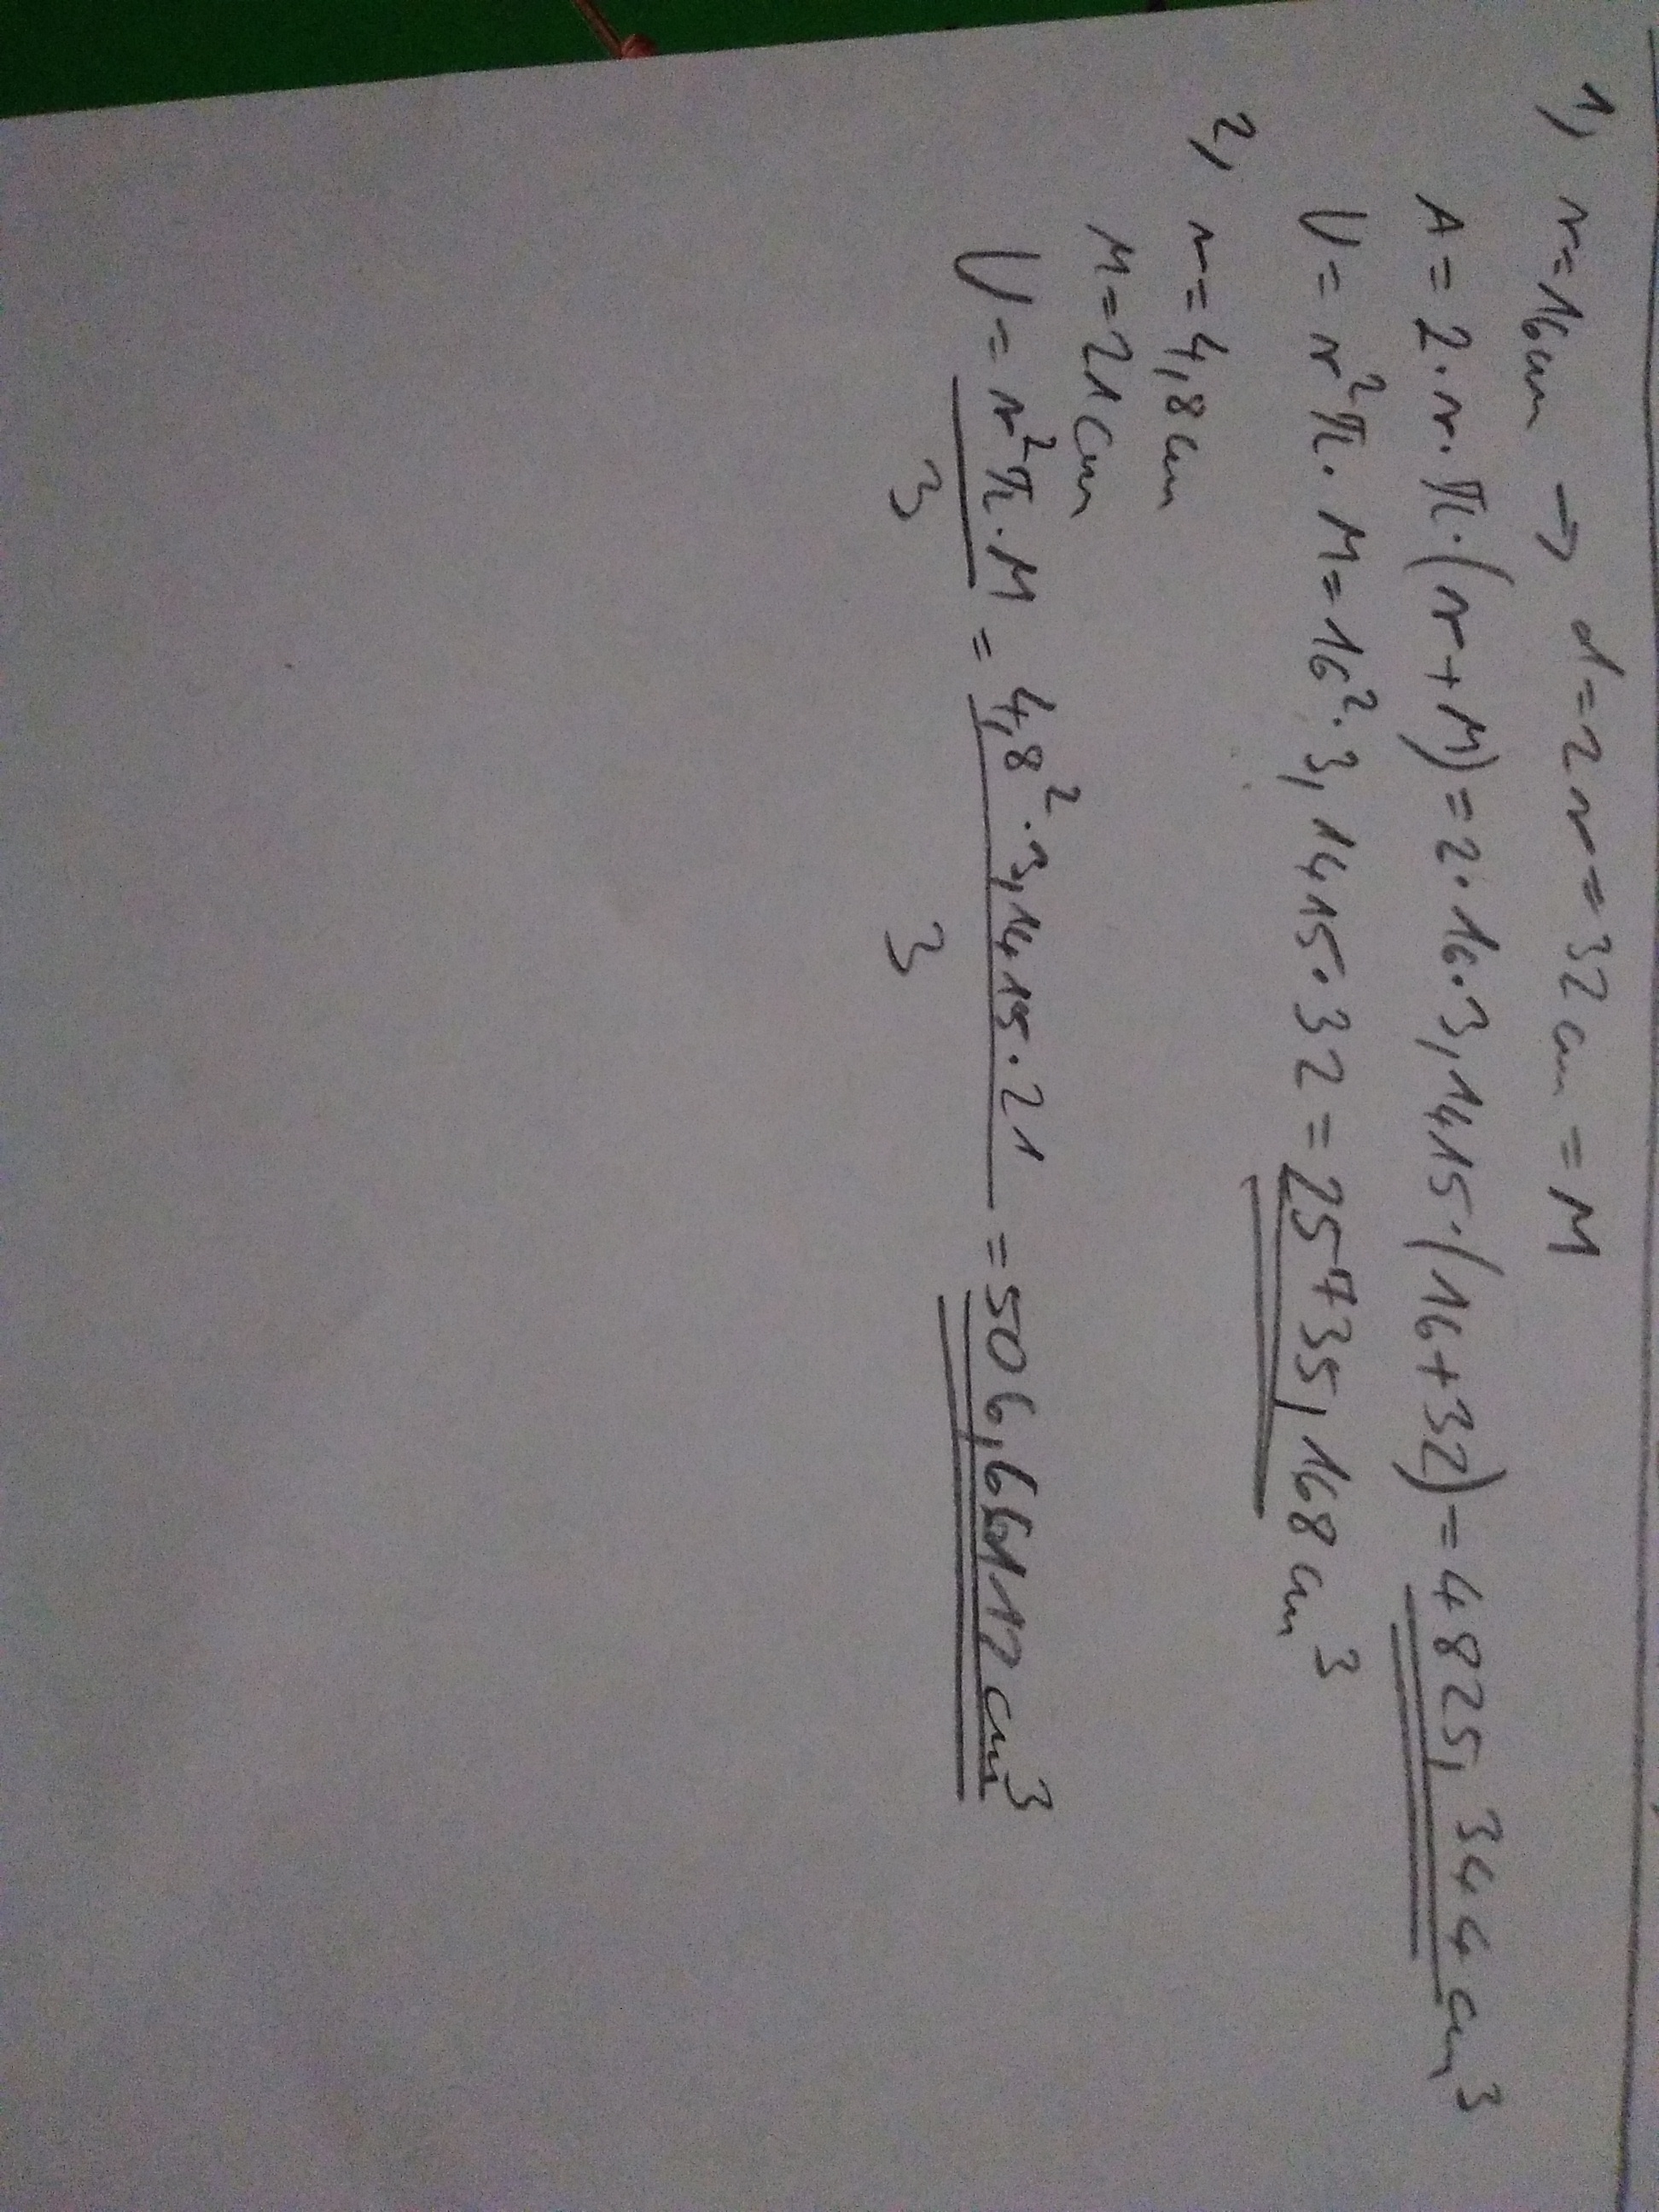 1, r=16cm → d=2r=32cm=M
A=2·r·π·(r+M)=2·16·3,1415·(16+32)=4825,344cm³
V=r²π·M=16²·3,1415·32=25735,168cm³
2, r=4,8cm
M=21cm
V=r²π·M/3=4,8²·3,1415·21/3=506,66112cm³